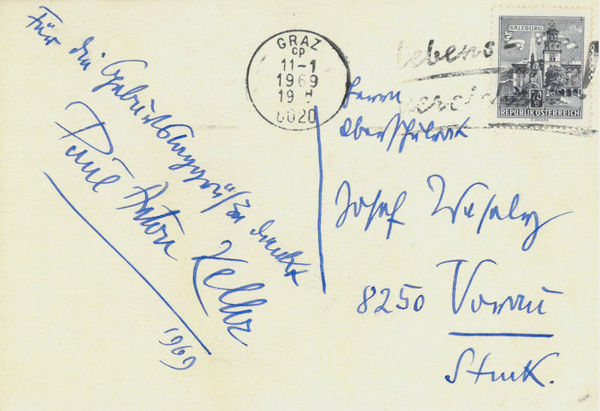 Für die
Geburtstagsgrüße dankt
Paul Anton Keller
1969
GRAZ
cp
11-1
1969
19 H
8020
lebens-
SALZBURG
REPUBLIK ÖSTERREICH
Herrn
Oberschulrat
Josef Wesely
8250 Vorau
Stmk.